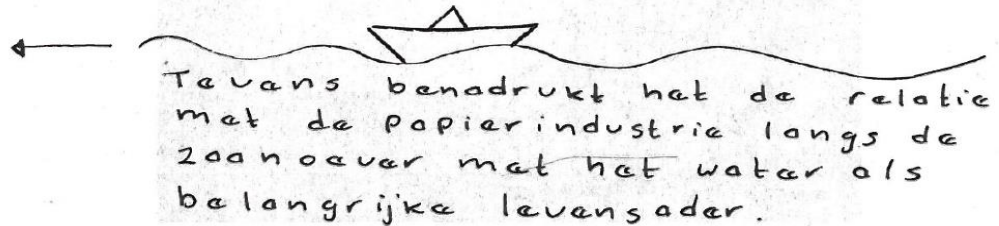 Tevens benadrukt het de relatie
met de papierindustrie langs de
Zaanoever met het water als
belangrijke levensader.